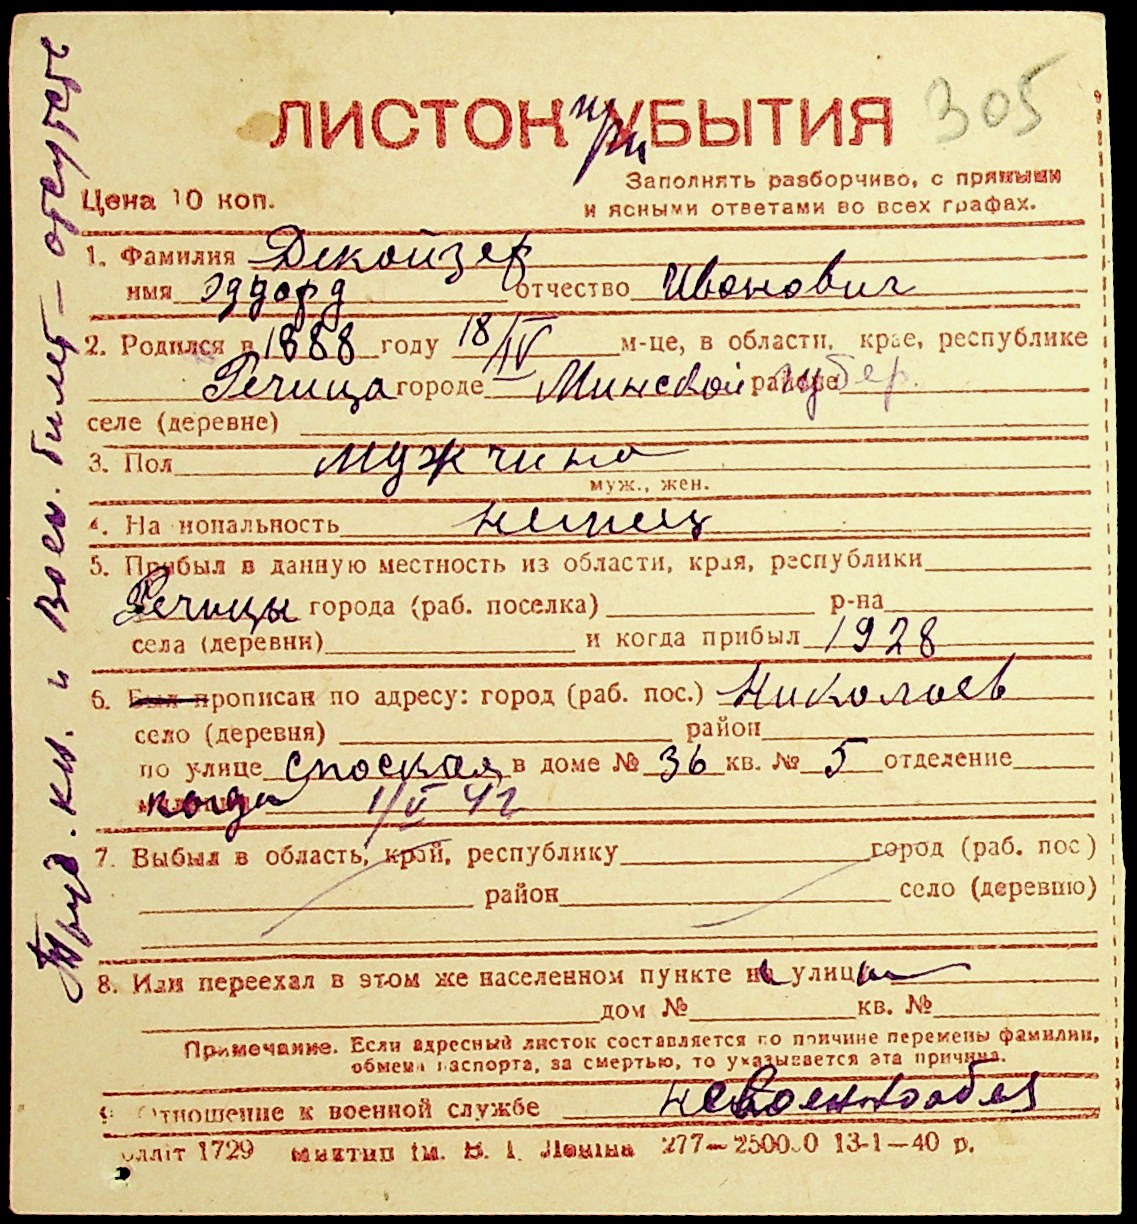 305
ЛИСТОК при УБЫТИЯ
Заполнять разборчиво, с прямыми
Цена 10 коп.
и ясными ответами во всех графах.
1. Фамилия Декойзер
имя Эдуард отчество Иванович
2. Родился в 1888 году 18/IV м-це, в области, крае, республике
Речица городе Минской районе губер.
селе (деревне)
3. Пол мужчина
муж., жен.
4. На иональность немец
5. Прибыл в данную местность из области, края, республики
Речицы города (раб. поселка) р-на
села (деревни) и когда прибыл 1928
6. Был прописан по адресу: город (раб. пос.) Николаев
село (деревня) район
по улице Спаская в доме № 36 кв. № 5 отделение
когда 1/V 42
7. Выбыл в область, край, республику город (раб. пос)
район село (деревню)
8. Или переехал в этом же населенном пункте на улицу
дом № кв. №
Примечание. Если адресный листок составляется по причине перемены фамилии,
обмена паспорта, за смертью, то указывается эта причина.
9. Отношение к военной службе невоеннообяз
1729 ім. В. І. Леніна 277—25000 13-1—40 р.
Труд. кн. и Воен. билет — отсутств